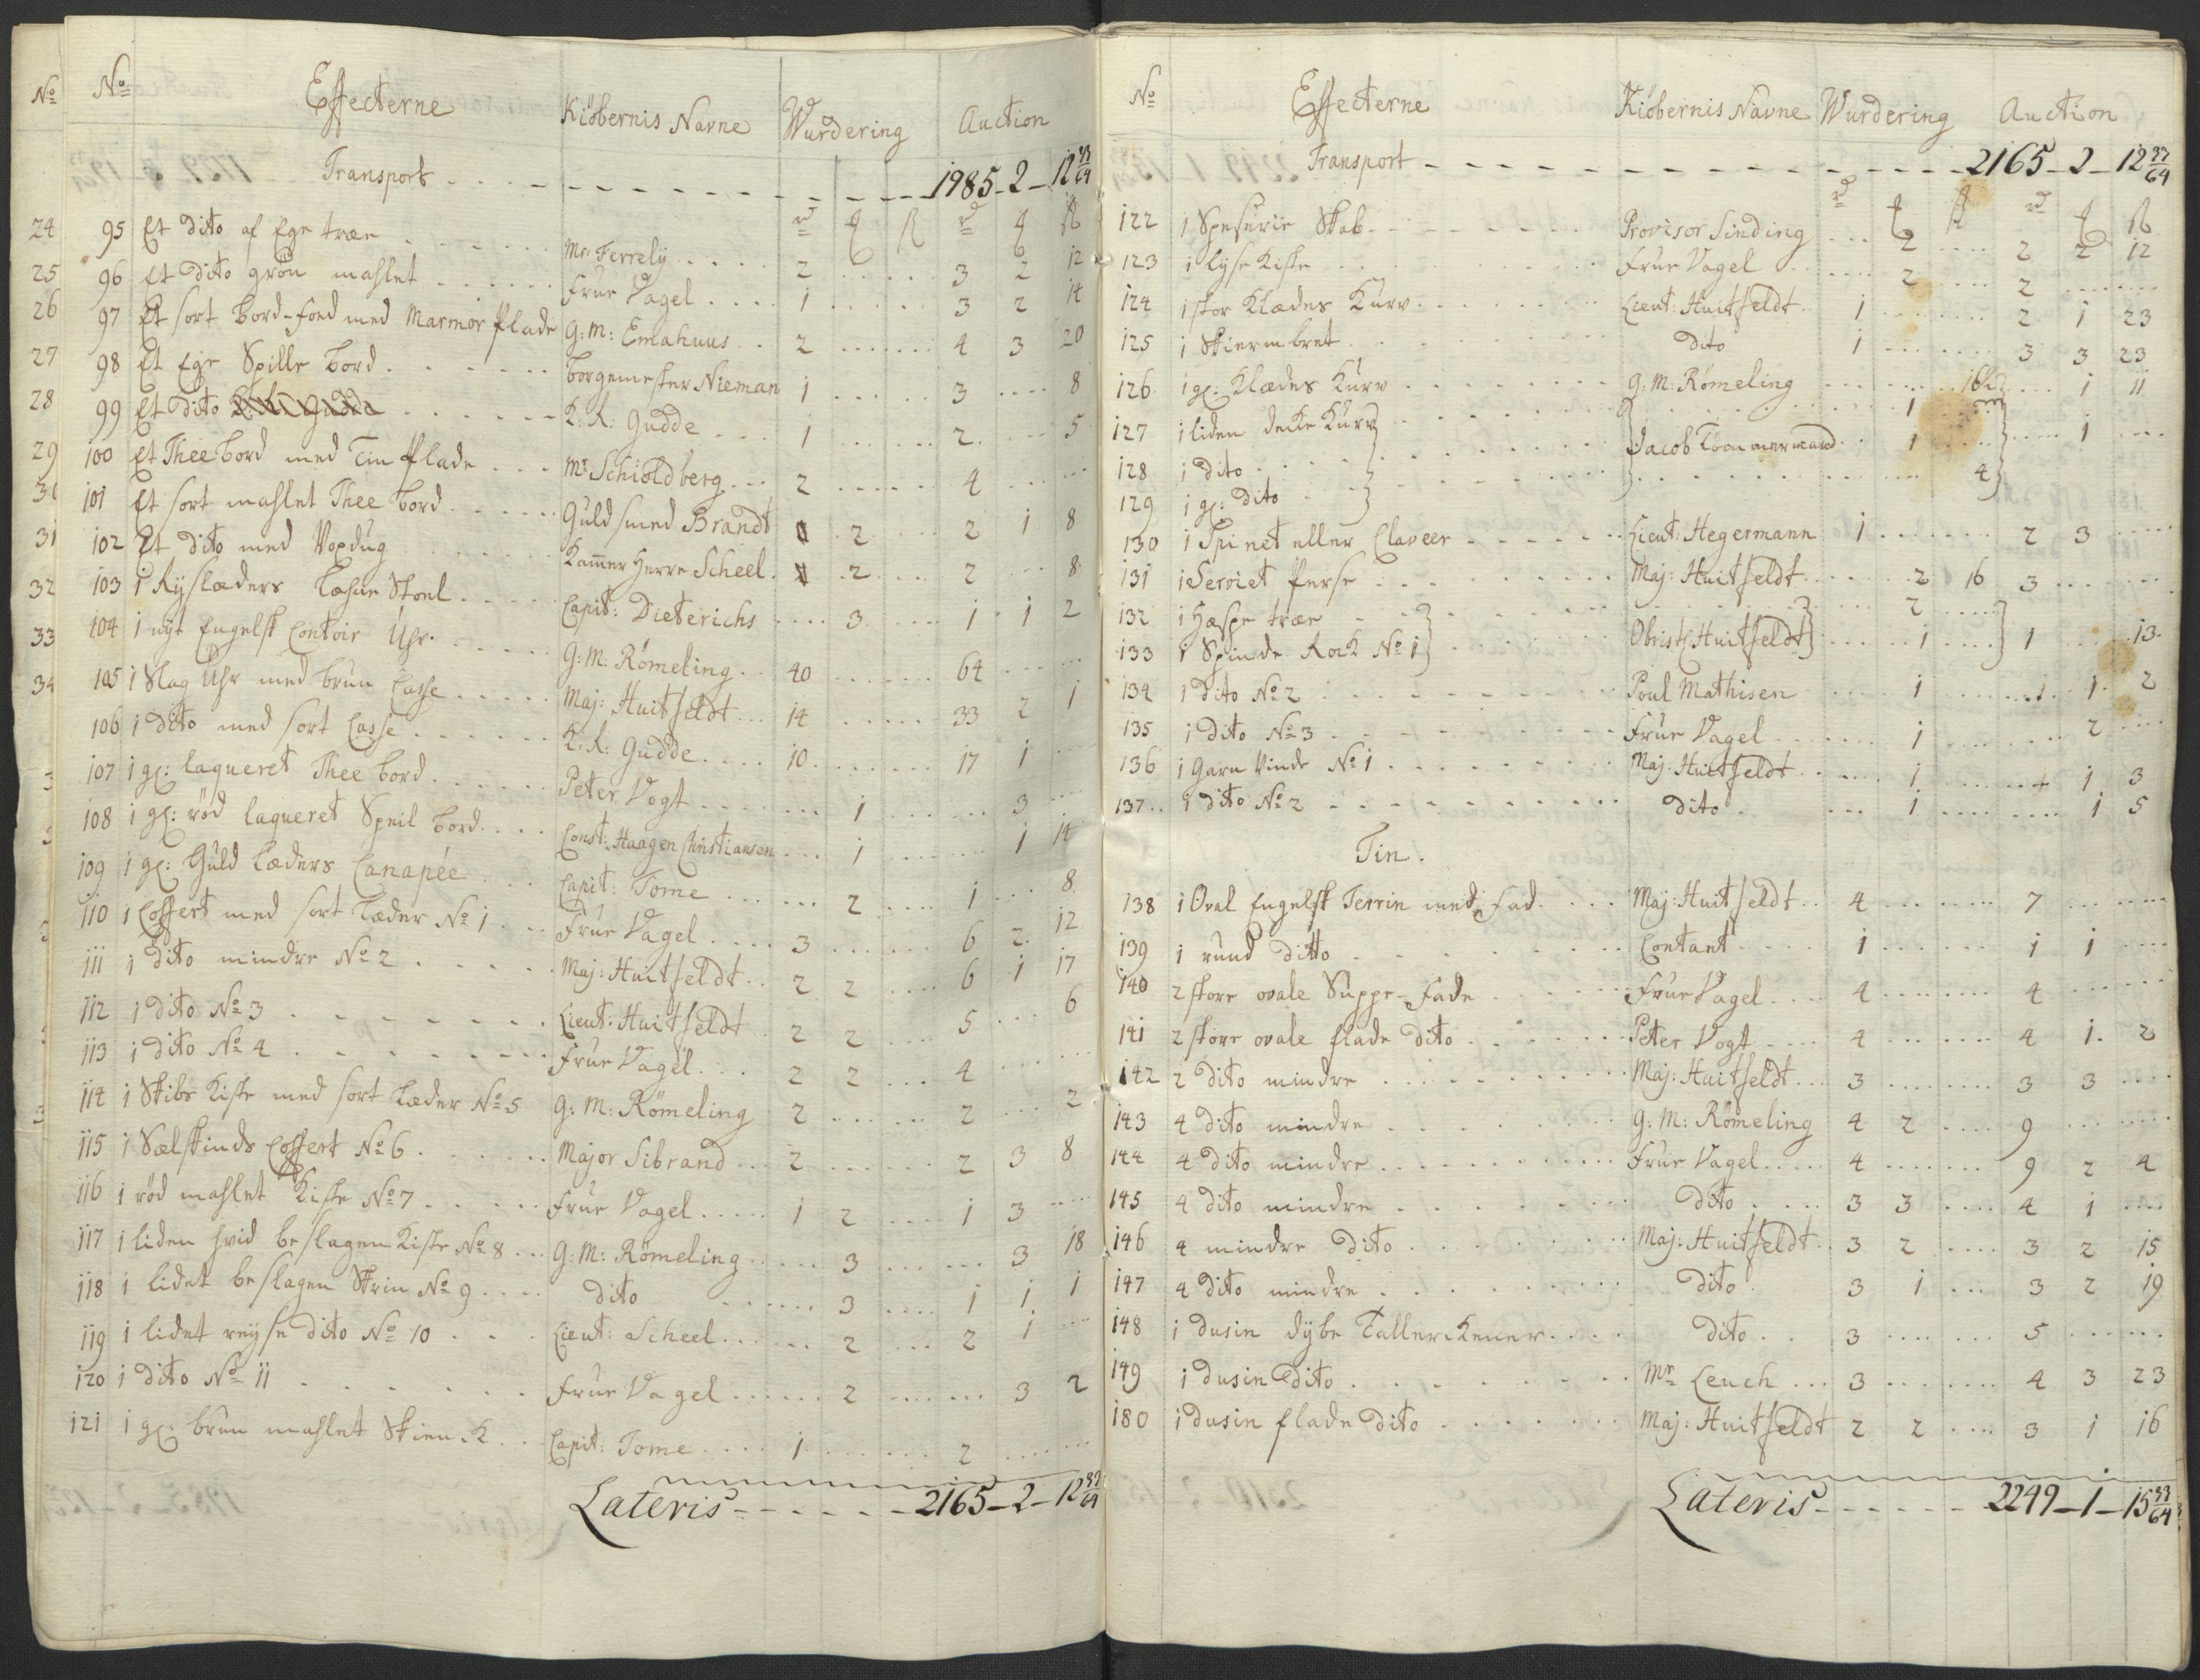 No Effecterne Kiöbernis Navne Wurdering Auction
Transport - - - 1985 - 2 - 12 33/64
rd ß rd ß
95 Et dito af Ege træe . . . Mr: Ferrely . . . 2 . . . 3 2 12
96 Et dito grön mahlet . . . Frue Vagel . . . 1 . . . 3 2 14
97 Et sort bord-foed med Marmor Plade G: M: Emahuus . . 2 . . . 4 3 20
98 Et Ege Spille bord . . . borgemester Nieman 1 . . . 3 . . . 8
99 Et dito . . . K. R: Gudde . . . 1 . . . 2 . . . 5
100 Et Thee bord med Tin Plade . . . Mr Schioldberg . . . 2 . . . 4 . . .
101 Et sort mahlet Thee bord . . . Guldsmed Brandt 2 . . . 2 1 8
102 Et dito med Voxdug . . . Kammer Herre Scheel . 2 . . . 2 . . . 8
103 1 Ryslæders Læhne Stoel . . . Capit: Dieterichs . . . 3 . . . 1 1 2
104 1 nyt Engelsk Contoir Uhr . . . G: M: Römeling . . 40 . . . 64 . . .
105 1 Slag Uhr med brun Casse . . . Maj: Huitfeldt . . . 14 . . . 33 2 1
106 1 dito med sort Casse . . . K: R: Gudde . . . 10 . . . 17 1 . . .
107 1 gl: laqueret Thee bord . . . Peter Vogt . . . 1 . . . 3 . . .
108 1 gl: rød laqueret Speil bord . . . Const: Haagen Christiansen . . . 1 . . . 1 14
109 1 gl: Guld læders Canapée . . . Capit: Tome . . . 2 . . . 1 . . . 8
110 1 Coffert med sort Læder No 1 . . . Frue Vagel . . . 3 . . . 6 2 12
111 1 dito mindre No 2 . . . Maj: Huitfeldt . . 2 2 . . . 6 1 17
112 1 dito No 3 . . . Lieut: Huitfeldt . . 2 2 . . . 5 . . . 6
113 1 dito No 4 . . . Frue Vagel . . . 2 2 . . . 4 . . .
114 1 Skibs Kiste med sort Læder No 5 G: M: Römeling 2 . . . 2 . . . 2
115 1 Sælskinds Coffert No 6 . . . Major Sibrand . . . 2 . . . 2 3 8
116 1 rød mahlet Kiste No 7 . . . Frue Vagel . . . 1 2 . . . 1 3 . . .
117 1 liden hvid beslagen Kiste No 8 . . . G: M: Römeling . . . 3 . . . 3 18
118 1 lidet beslagen Skrin No 9 . . . dito . . . 3 . . . 1 1 1
119 1 lidet reyse dito No 10 . . . Lieut: Scheel . . . 2 . . . 2 1 . . .
120 1 dito No 11 . . . Frue Vagel . . . 2 . . . 3 2
121 1 gl: brun mahlet Skienk . . . Capit: Tome . . . 1 . . . 2 . . .
Lateris - - - 2165 - 2 - 12 33/64
No
24
25
26
27
28
29
30
31
32
33
34
No Effecterne Kiöbernis Navne Wurdering Auction
Transport - - - 2165 - 2 - 12 33/64
rd ß rd ß
122 1 Speserie Skab . . . Provisor Sinding . . . 2 . . . 2 2 12
123 1 lyse Kiste . . . Frue Vagel . . . 2 . . . 2 . . .
124 1 stor Klædes Kurv . . . Lieut: Huitfeldt . . 1 . . . 2 1 23
125 1 Skiermbret . . . dito 1 . . . 3 3 23
126 1 gl: Klædes Kurv . . . G: M: Römeling . . . 16 . . . 1 11
127 1 liden decke Kurv . . . 1 . . .
128 1 dito . . . Jacob Tømmermand . . 1 . . . 1 . . .
129 1 gl: dito . . . 4
130 1 Spinet eller Claveer . . . Lieut: Hegermann 1 . . . 2 3 . . .
131 1 Serviet Perse . . . Maj: Huitfeldt . . . 2 16 3 . . .
132 1 Haspe træe . . . 2 . . .
133 1 Spinde Rock No 1 . . . Obristl: Huitfeldt . . . 1 . . . 1 . . . 13
134 1 dito No 2 . . . Poul Mathisen . . . 1 . . . 1 1 2
135 1 dito No 3 . . . Frue Vagel . . . 1 . . . 2 . . .
136 1 Garn Vinde No 1 . . . Maj: Huitfeldt . . . 1 . . . 1 3
137 1 dito No 2 . . . dito . . . 1 . . . 1 5
Tin.
138 1 Oval Engelsk Terrin med Fad . . . Maj: Huitfeldt . . 4 . . . 7 . . .
139 1 rund ditto . . . Contant . . . 1 . . . 1 1 . . .
140 2 store ovale Suppe-Fade . . . Frue Vagel . . . 4 . . . 4 . . .
141 2 store ovale flade dito . . . Peter Vogt . . . 4 . . . 4 1 2
142 2 dito mindre . . . Maj: Huitfeldt . . . 3 . . . 3 3 . . .
143 4 dito mindre . . . G: M: Römeling 4 2 . . . 9 . . .
144 4 dito mindre . . . Frue Vagel . . . 4 . . . 9 2 4
145 4 dito mindre . . . dito . . . 3 3 . . . 4 1 . . .
146 4 mindre dito . . . Maj: Huitfeldt . . 3 2 . . . 3 2 15
147 4 dito mindre . . . dito . 3 1 . . . 3 2 19
148 1 dusin dybe Tallerkener . . . dito . . 3 . . . 5 . . .
149 1 dusin dito . . . Mr Leuch . . . 3 . . . 4 3 23
180 1 dusin flade dito . . . Maj: Huitfeldt 2 2 . . . 3 1 16
Lateris - - - 2249 - 1 - 15 33/64